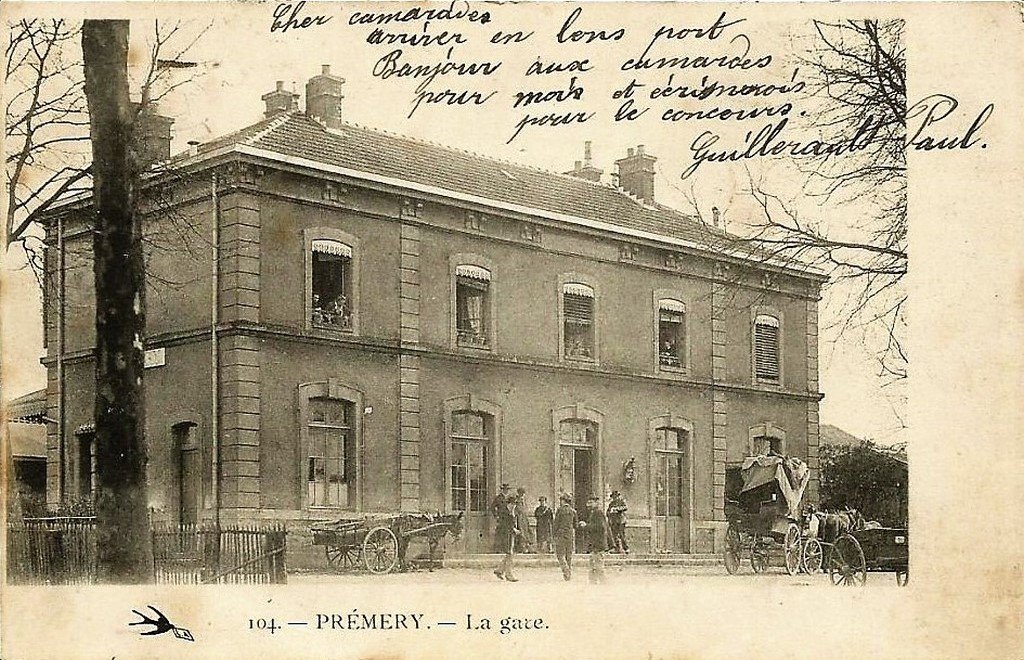 Cher camarades
arriver en bons port
Banjour aux camarades
pour mois et
pour le concours.
Guillerault Paul.
104. — PRÉMERY. — La gare.